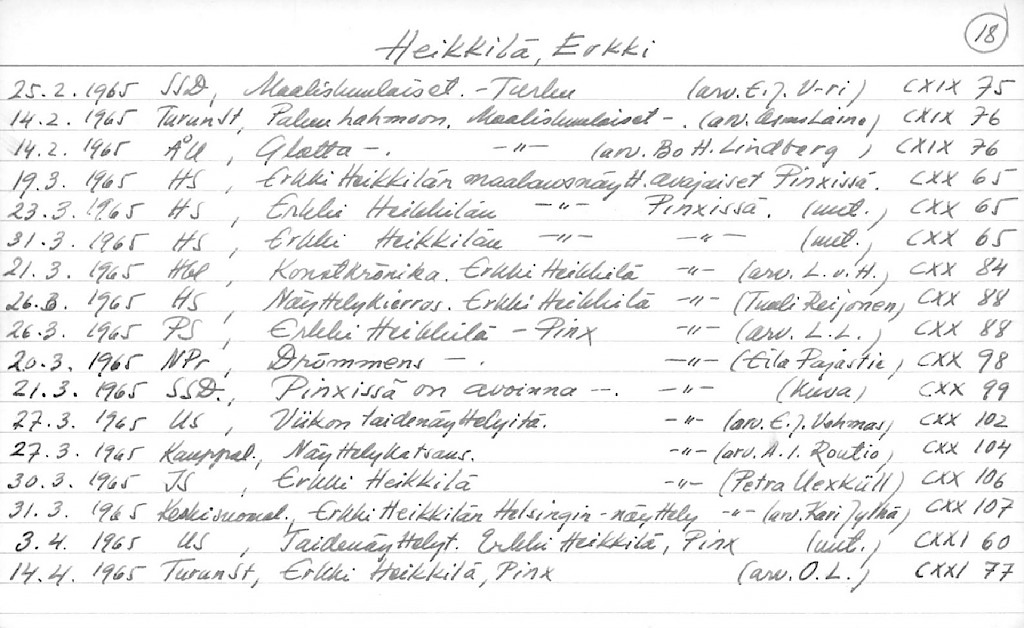 18
Heikkilä, Erkki
25.2. 1965 SSD, Maaliskuulaiset. - Turku (arv. E.J. V-ri) CXIX 75
14.2. 1965 Turunst, Paluu hahmoon. Maaliskuulaiset -. (arv. Osmo Laine) CXIX 76
14.2. 1965 ÅU, Glatta -. -"- (arv. Bo H. Lindberg) CXIX 76
19.3. 1965 HS, Erkki Heikkilän maalausnäytt. avajaiset Pinxissä. CXX 65
23.3. 1965 HS, Erkki Heikkilän -"- Pinxissä. (uut.) CXX 65
31.3. 1965 HS, Erkki Heikkilän -"- -"- (uut.) CXX 65
21.3. 1965 Hbl, Konstkrönika. Erkki Heikkilä -"- (arv. L.v.H.) CXX 84
26.3. 1965 HS, Näyttelykierros. Erkki Heikkilä -"- (Tuuli Reijonen) CXX 88
26.3. 1965 PS, Erkki Heikkilä - Pinx -"- (arv. L.L.) CXX 88
20.3. 1965 NPr, Drömmens -. -"- (Eila Pajastie) CXX 98
21.3. 1965 SSD., Pinxissä on avoinna -. -"- (Kuva) CXX 99
27.3. 1965 US, Viikon taidenäyttelyitä. -"- (arv. E.J. Vehmas) CXX 102
27.3. 1965 Kauppal., Näyttelykatsaus. -"- (arv. A.I. Routio) CXX 104
30.3. 1965 JS, Erkki Heikkilä -"- (Petra Uexküll) CXX 106
31.3. 1965 Keskisuomal., Erkki Heikkilän Helsingin-näyttely -"- (arv. Kari Jylhä) CXX 107
3.4. 1965 US, Taidenäyttelyt. Erkki Heikkilä, Pinx (uut.) CXXI 60
14.4. 1965 Turunst, Erkki Heikkilä, Pinx (arv. O.L.) CXXI 77